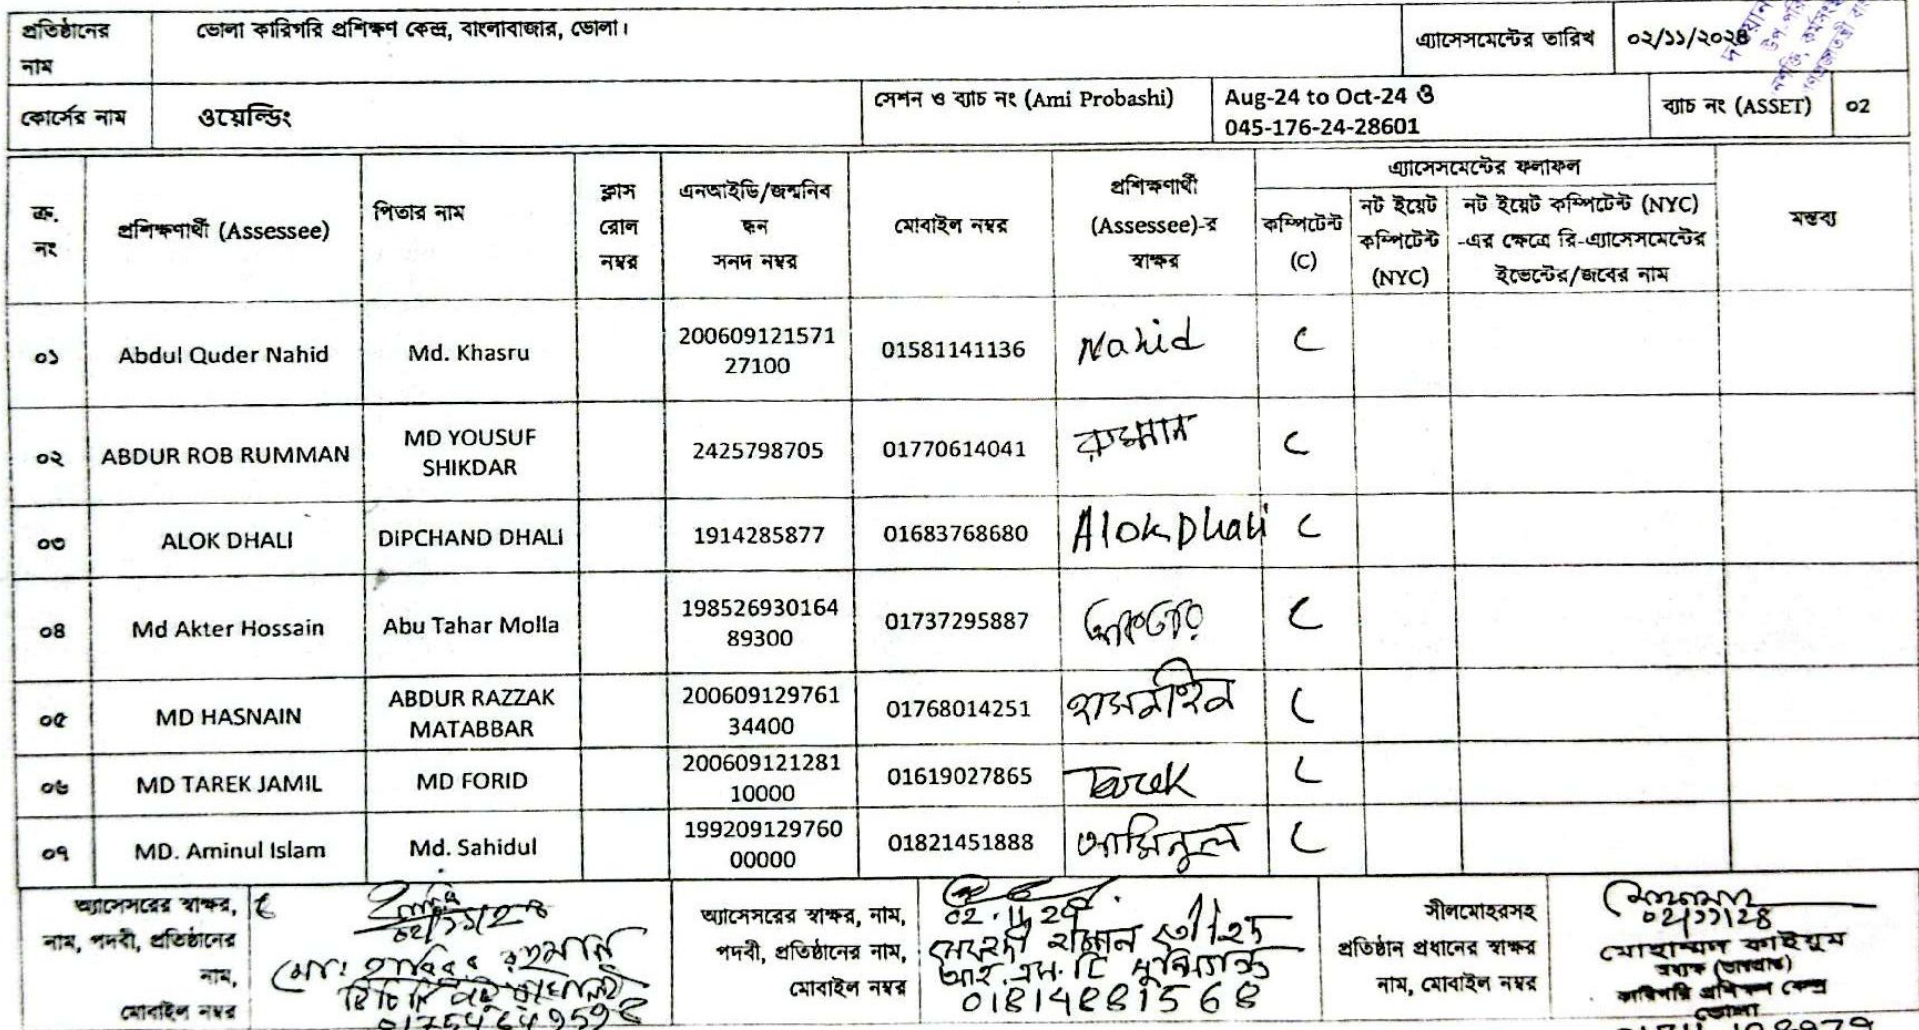 প্রতিষ্ঠানের নাম ভোলা কারিগরি প্রশিক্ষণ কেন্দ্র, বাংলাবাজার, ভোলা। এ্যাসেসমেন্টের তারিখ ০২/১১/২০২৪
কোর্সের নাম ওয়েল্ডিং সেশন ও ব্যাচ নং (Ami Probashi) Aug-24 to Oct-24 ও 045-176-24-28601 ব্যাচ নং (ASSET) ০২
ক্র. নং প্রশিক্ষণার্থী (Assessee) পিতার নাম ক্লাস রোল নম্বর এনআইডি/জন্মনিবন্ধন সনদ নম্বর মোবাইল নম্বর প্রশিক্ষণার্থী (Assessee)-র স্বাক্ষর এ্যাসেসমেন্টের ফলাফল মন্তব্য
কম্পিটেন্ট (C) নট ইয়েট কম্পিটেন্ট (NYC) নট ইয়েট কম্পিটেন্ট (NYC) -এর ক্ষেত্রে রি-এ্যাসেসমেন্টের ইভেন্টের/জবের নাম
০১ Abdul Quder Nahid Md. Khasru 20060912157127100 01581141136 Nahid C
০২ ABDUR ROB RUMMAN MD YOUSUF SHIKDAR 2425798705 01770614041 রুম্মান C
০৩ ALOK DHALI DIPCHAND DHALI 1914285877 01683768680 Alok Dhali C
০৪ Md Akter Hossain Abu Tahar Molla 19852693016489300 01737295887 আকতার C
০৫ MD HASNAIN ABDUR RAZZAK MATABBAR 20060912976134400 01768014251 হাসনাইন C
০৬ MD TAREK JAMIL MD FORID 20060912128110000 01619027865 Tarek C
০৭ MD. Aminul Islam Md. Sahidul 19920912976000000 01821451888 আমিনুল C
অ্যাসেসরের স্বাক্ষর,
নাম, পদবী, প্রতিষ্ঠানের
নাম,
মোবাইল নম্বর
০২/১১/২৪
মোঃ হাবিবুর রহমান
অ্যাসেসরের স্বাক্ষর, নাম,
পদবী, প্রতিষ্ঠানের নাম,
মোবাইল নম্বর
02.11.24
সীলমোহরসহ
প্রতিষ্ঠান প্রধানের স্বাক্ষর
নাম, মোবাইল নম্বর
০২/১১/২৪
মোহাম্মদ কাইয়ুম
অধ্যক্ষ (ভারপ্রাপ্ত)
কারিগরি প্রশিক্ষণ কেন্দ্র
ভোলা